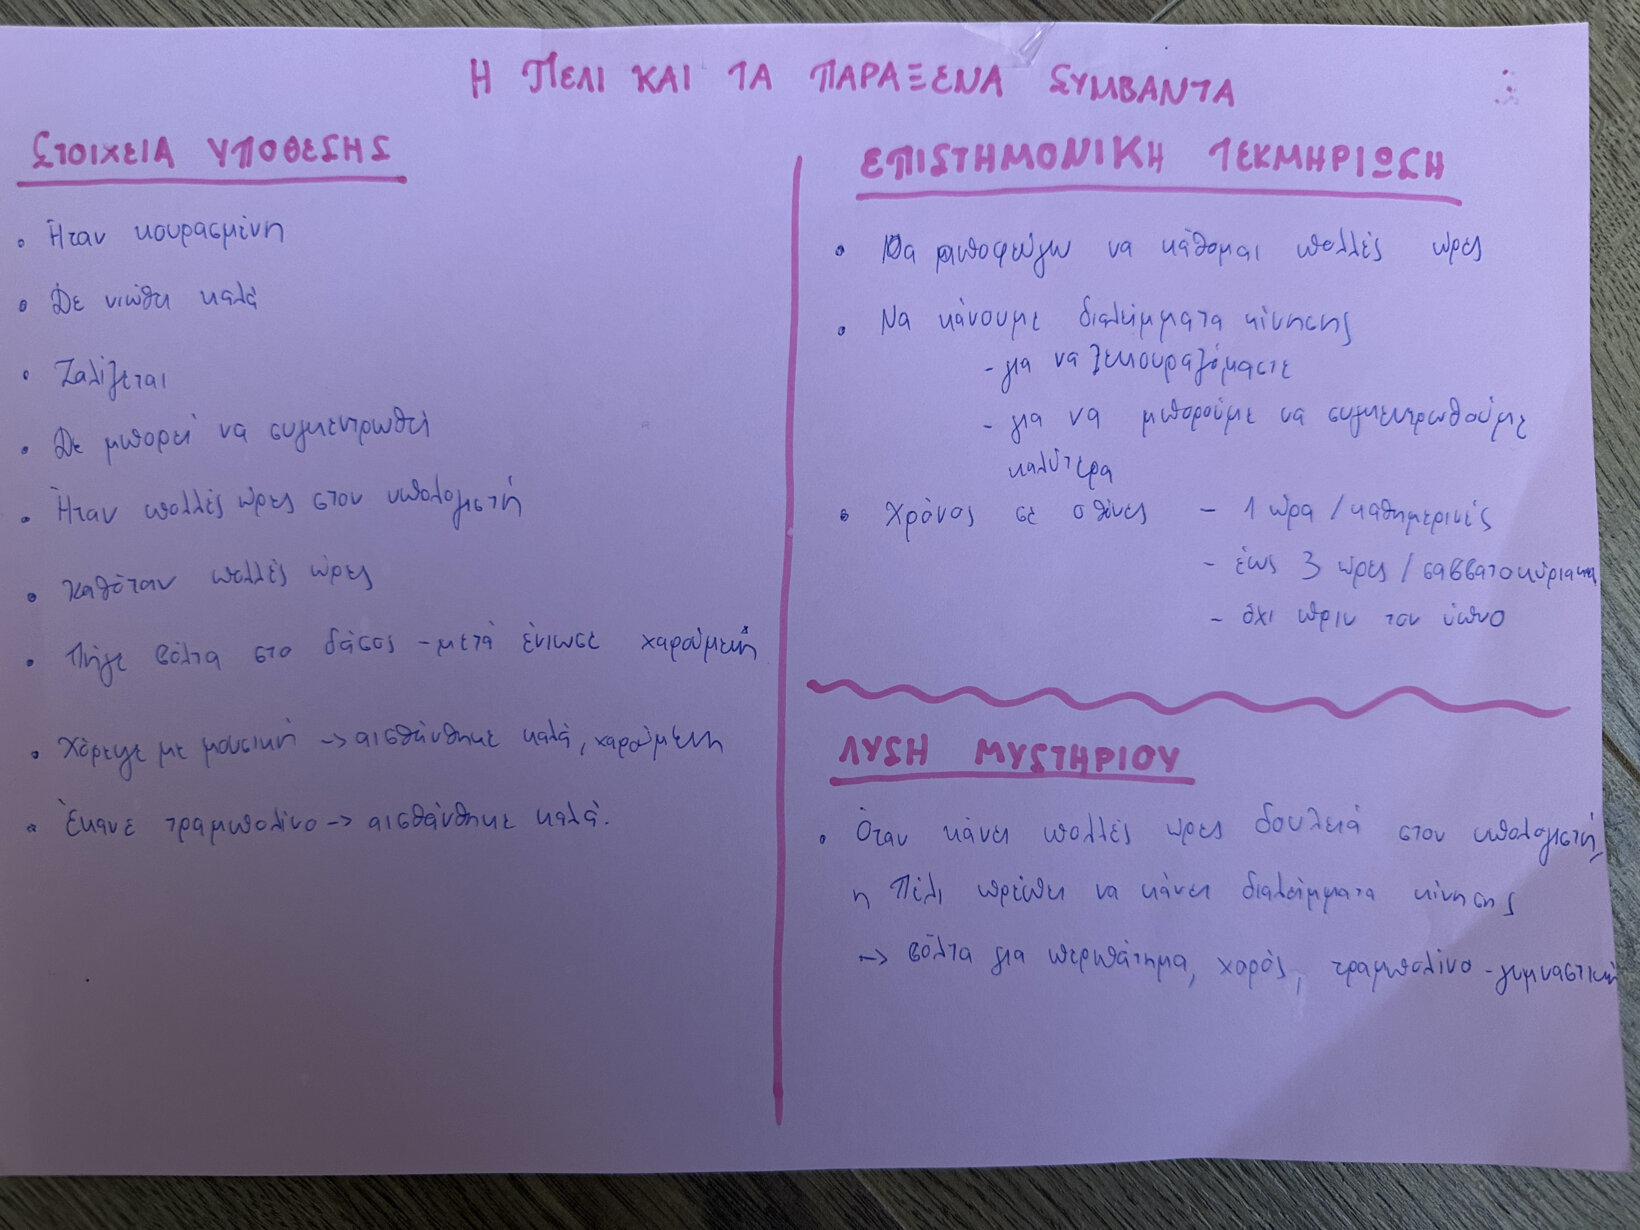 Η ΠΕΛΙ ΚΑΙ ΤΑ ΠΑΡΑΞΕΝΑ ΣΥΜΒΑΝΤΑ
ΣΤΟΙΧΕΙΑ ΥΠΟΘΕΣΗΣ
• Ήταν κουρασμένη
• Δε νιώθει καλά
• Ζαλίζεται
• Δε μπορεί να συγκεντρωθεί
• Ήταν πολλές ώρες στον υπολογιστή
• Καθόταν πολλές ώρες
• Πήγε βόλτα στο δάσος - μετά ένιωσε χαρούμενη
• Χόρεψε με μουσική -> αισθάνθηκε καλά, χαρούμενη
• Έκανε τραμπολίνο -> αισθάνθηκε καλά.
ΕΠΙΣΤΗΜΟΝΙΚΗ ΤΕΚΜΗΡΙΩΣΗ
• Να αποφεύγω να κάθομαι πολλές ώρες
• Να κάνουμε διαλείμματα κίνησης
- για να ξεκουραζόμαστε
- για να μπορούμε να συγκεντρωθούμε
καλύτερα
• Χρόνος σε οθόνες - 1 ώρα / καθημερινές
- έως 3 ώρες / σαββατοκύριακα
- όχι πριν τον ύπνο
ΛΥΣΗ ΜΥΣΤΗΡΙΟΥ
• Όταν κάνει πολλές ώρες δουλειά στον υπολογιστή,
η Πέλι πρέπει να κάνει διαλείμματα κίνησης
-> βόλτα για περπάτημα, χορός, τραμπολίνο - γυμναστική